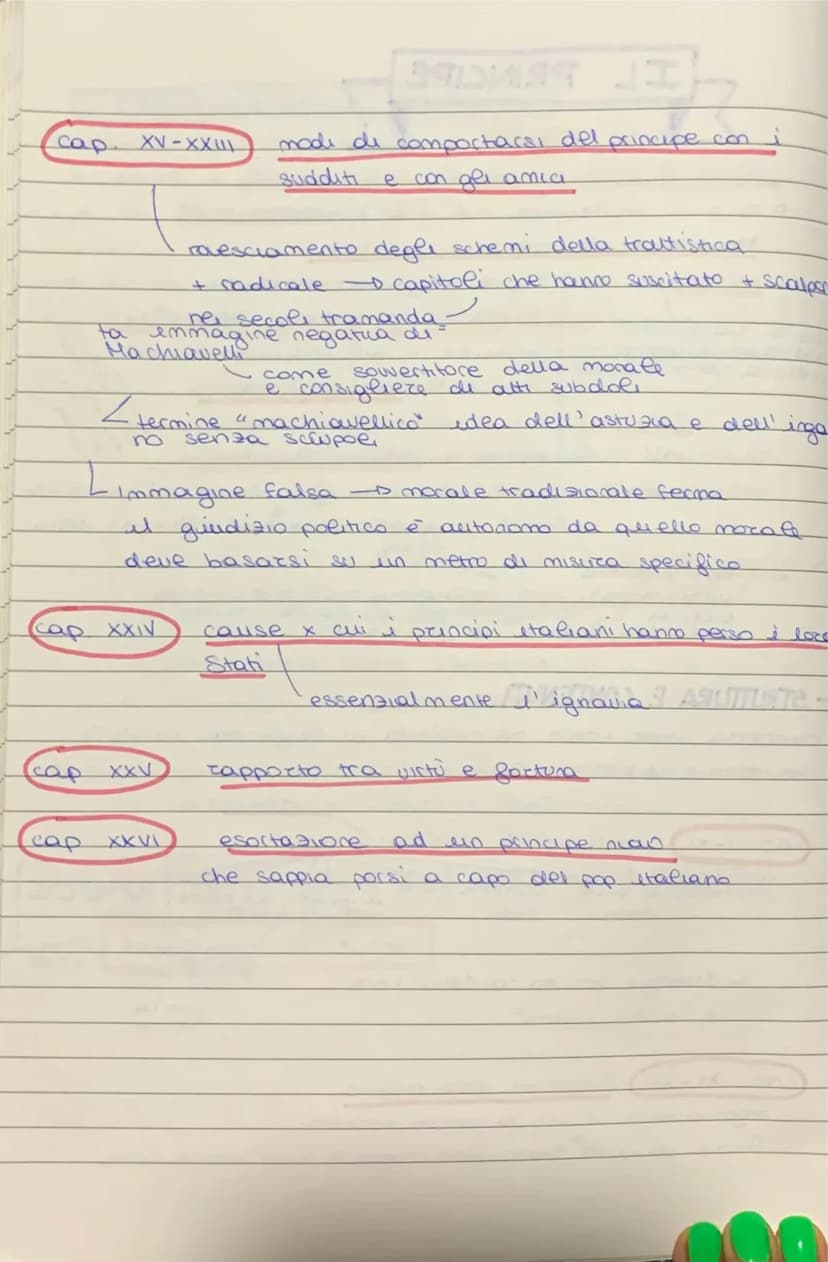 cap. XV-XXIII modi di comportarsi del principe con i
sudditi e con gli amici
rovesciamento degli schemi della trattistica
+ radicale → capitoli che hanno suscitato + scalpor
nei secoli tramanda=
ta immagine negativa di
Machiavelli
come sovvertitore della morale
e consigliere di atti subdoli
termine "machiavellico" idea dell'astuzia e dell'inga
no senza scrupoli
immagine falsa → morale tradizionale ferma
il giudizio politico è autonomo da quello morale
deve basarsi su un metro di misura specifico
cap XXIV cause x cui i principi italiani hanno perso i loro
Stati
essenzialmente l'ignavia
cap XXV rapporto tra virtù e fortuna
cap XXVI esortazione ad un principe nuovo
che sappia porsi a capo del pop italiano
IL PRINCIPE
STRUTTURA E CONTENUTI